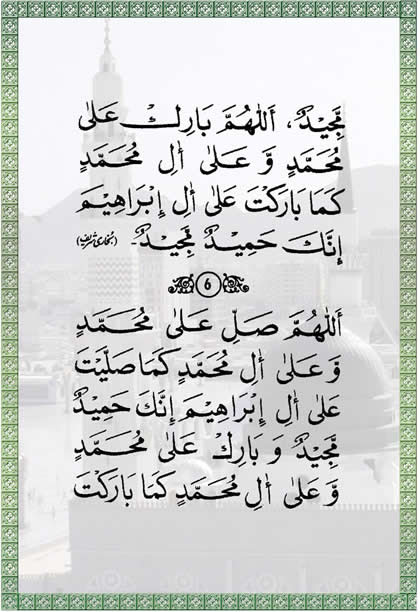 مَّجِيْدٌ، اَللّٰهُمَّ بَارِكْ عَلٰى
مُحَمَّدٍ وَّ عَلٰى اٰلِ مُحَمَّدٍ
كَمَا بَارَكْتَ عَلٰى اٰلِ اِبْرَاهِيْمَ
اِنَّكَ حَمِيْدٌ مَّجِيْدٌ۔ (بخاری شریف)
٥
اَللّٰهُمَّ صَلِّ عَلٰى مُحَمَّدٍ
وَّ عَلٰى اٰلِ مُحَمَّدٍ كَمَا صَلَّيْتَ
عَلٰى اٰلِ اِبْرَاهِيْمَ اِنَّكَ حَمِيْدٌ
مَّجِيْدٌ وَ بَارِكْ عَلٰى مُحَمَّدٍ
وَّ عَلٰى اٰلِ مُحَمَّدٍ كَمَا بَارَكْتَ